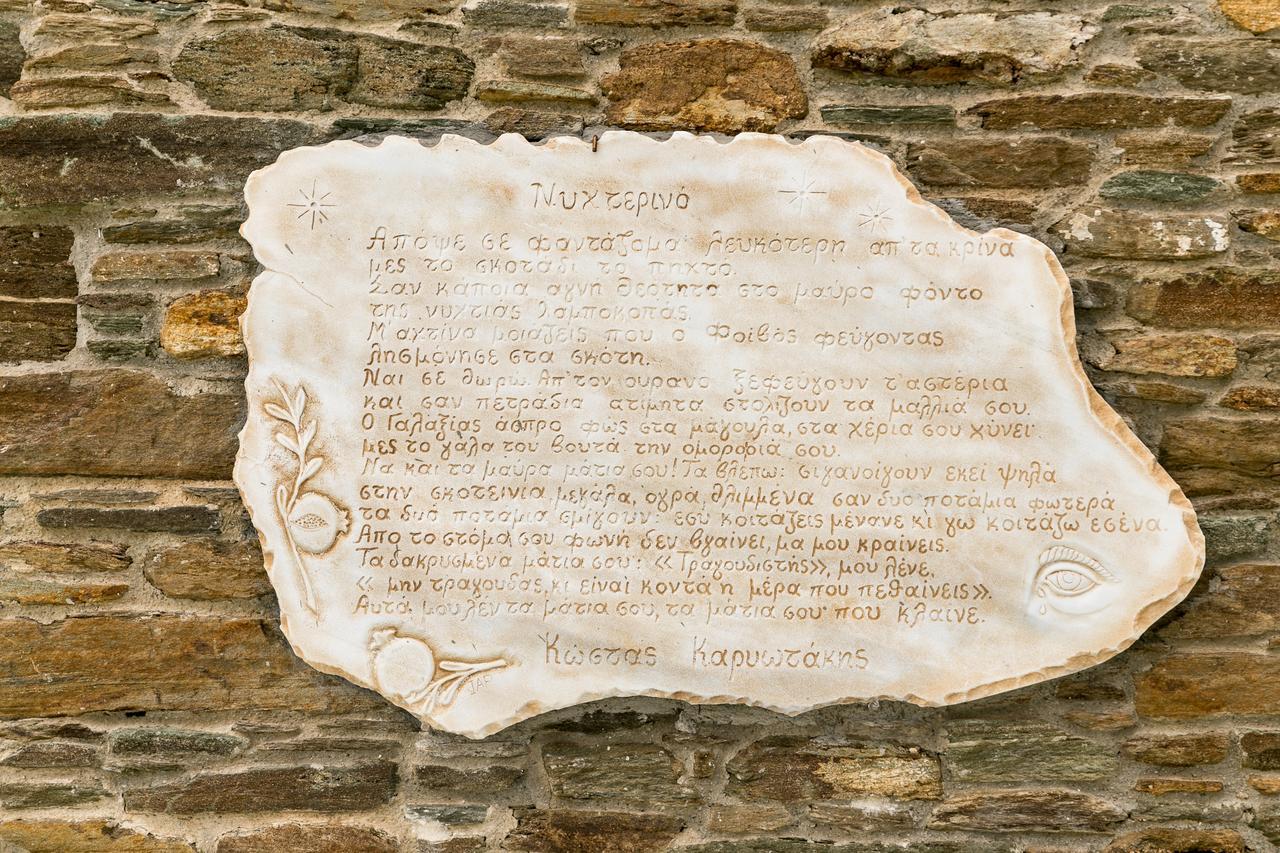 Νυχτερινό
Απόψε σε φαντάζομαι λευκότερη απ' τα κρίνα
μες το σκοτάδι το πηχτό.
Σαν κάποια αγνή θεότητα στο μαύρο φόντο
της νυχτιάς λαμποκοπάς.
Μ' αχτίνα μοιάζεις που ο Φοίβος φεύγοντας
λησμόνησε στα σκότη.
Ναι σε θωρώ. Απ' τον ουρανό ξεφεύγουν τ' αστέρια
και σαν πετράδια ατίμητα στολίζουν τα μαλλιά σου.
Ο Γαλαξίας άσπρο φως στα μάγουλα, στα χέρια σου χύνει
μες το γάλα του βουτά την ομορφιά σου.
Να και τα μαύρα μάτια σου! Τα βλέπω: σιγανοίγουν εκεί ψηλά
στην σκοτεινιά, μεγάλα, ογρά, θλιμμένα σαν δυο ποτάμια φωτερά
τα δυό ποτάμια σμίγουν: εσύ κοιτάζεις μένανε κι γω κοιτάζω εσένα.
Απο το στόμα σου φωνή δεν βγαίνει, μα μου κραίνεις.
Τα δακρυσμένα μάτια σου: «Τραγουδιστής», μου λένε,
« μην τραγουδάς, κι είναι κοντά η μέρα που πεθαίνεις».
Αυτά μου λεν τα μάτια σου, τα μάτια σου που κλαίνε.
Κώστας Καρυωτάκης